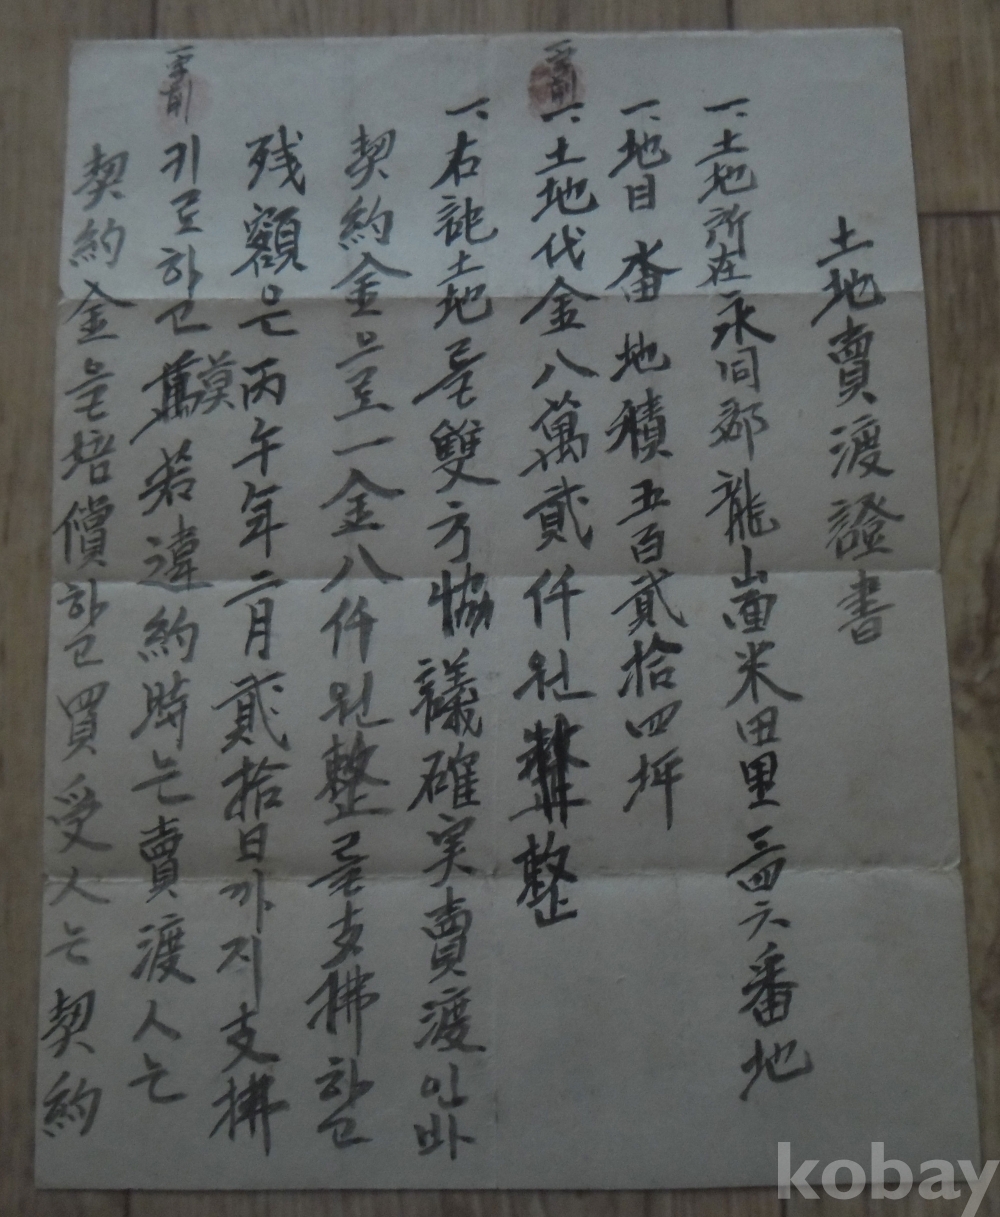 土地賣渡證書
一、土地所在永同郡龍山面米田里三四六番地
一、地目 畓 地積 五百貳拾四坪
一、土地代金八萬貳仟원整
一、右記土地를雙方協議確実賣渡인바
契約金으로一金八仟원整를支拂하고
残額은丙午年二月貳拾日까지支拂
키로하고萬若違約時는賣渡人는
契約金을培償하고買受人는契約
一字削
kobay